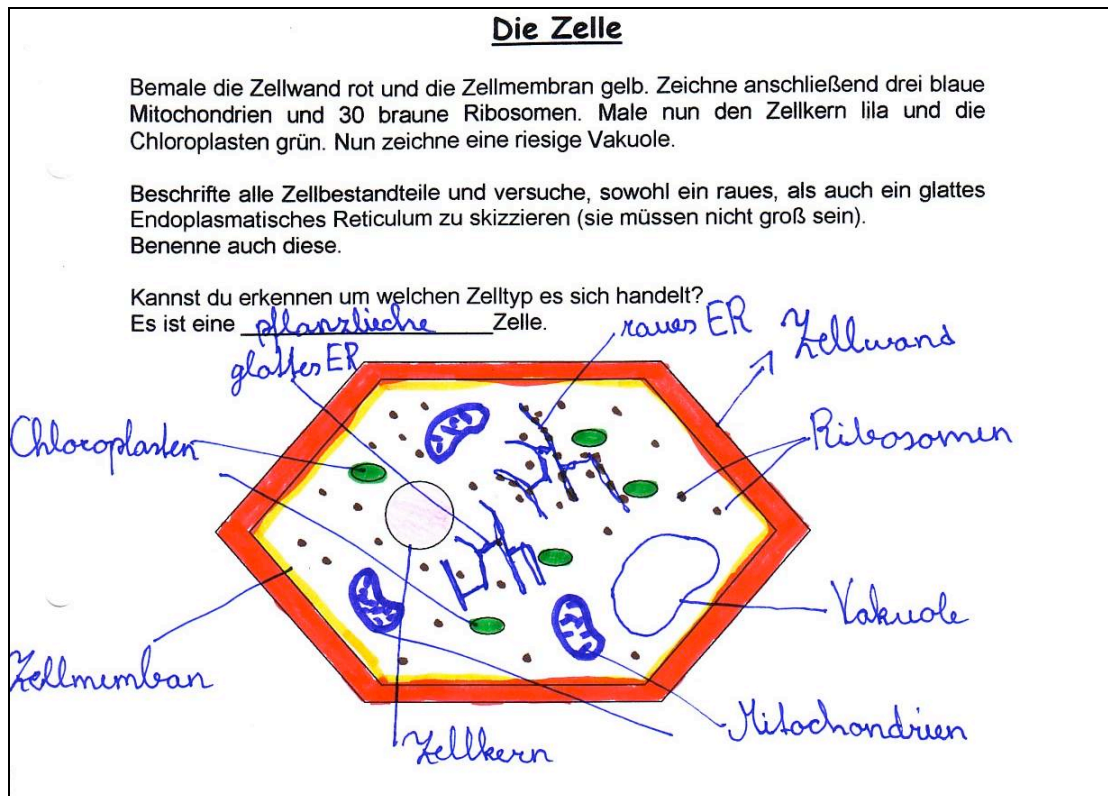 Die Zelle
Bemale die Zellwand rot und die Zellmembran gelb. Zeichne anschließend drei blaue
Mitochondrien und 30 braune Ribosomen. Male nun den Zellkern lila und die
Chloroplasten grün. Nun zeichne eine riesige Vakuole.
Beschrifte alle Zellbestandteile und versuche, sowohl ein raues, als auch ein glattes
Endoplasmatisches Reticulum zu skizzieren (sie müssen nicht groß sein).
Benenne auch diese.
Kannst du erkennen um welchen Zelltyp es sich handelt?
Es ist eine pflanzlieche Zelle.
raues ER
Zellwand
glattes ER
Chloroplasten
Ribosomen
Vakuole
Zellmemban
Mitochondrien
Zellkern